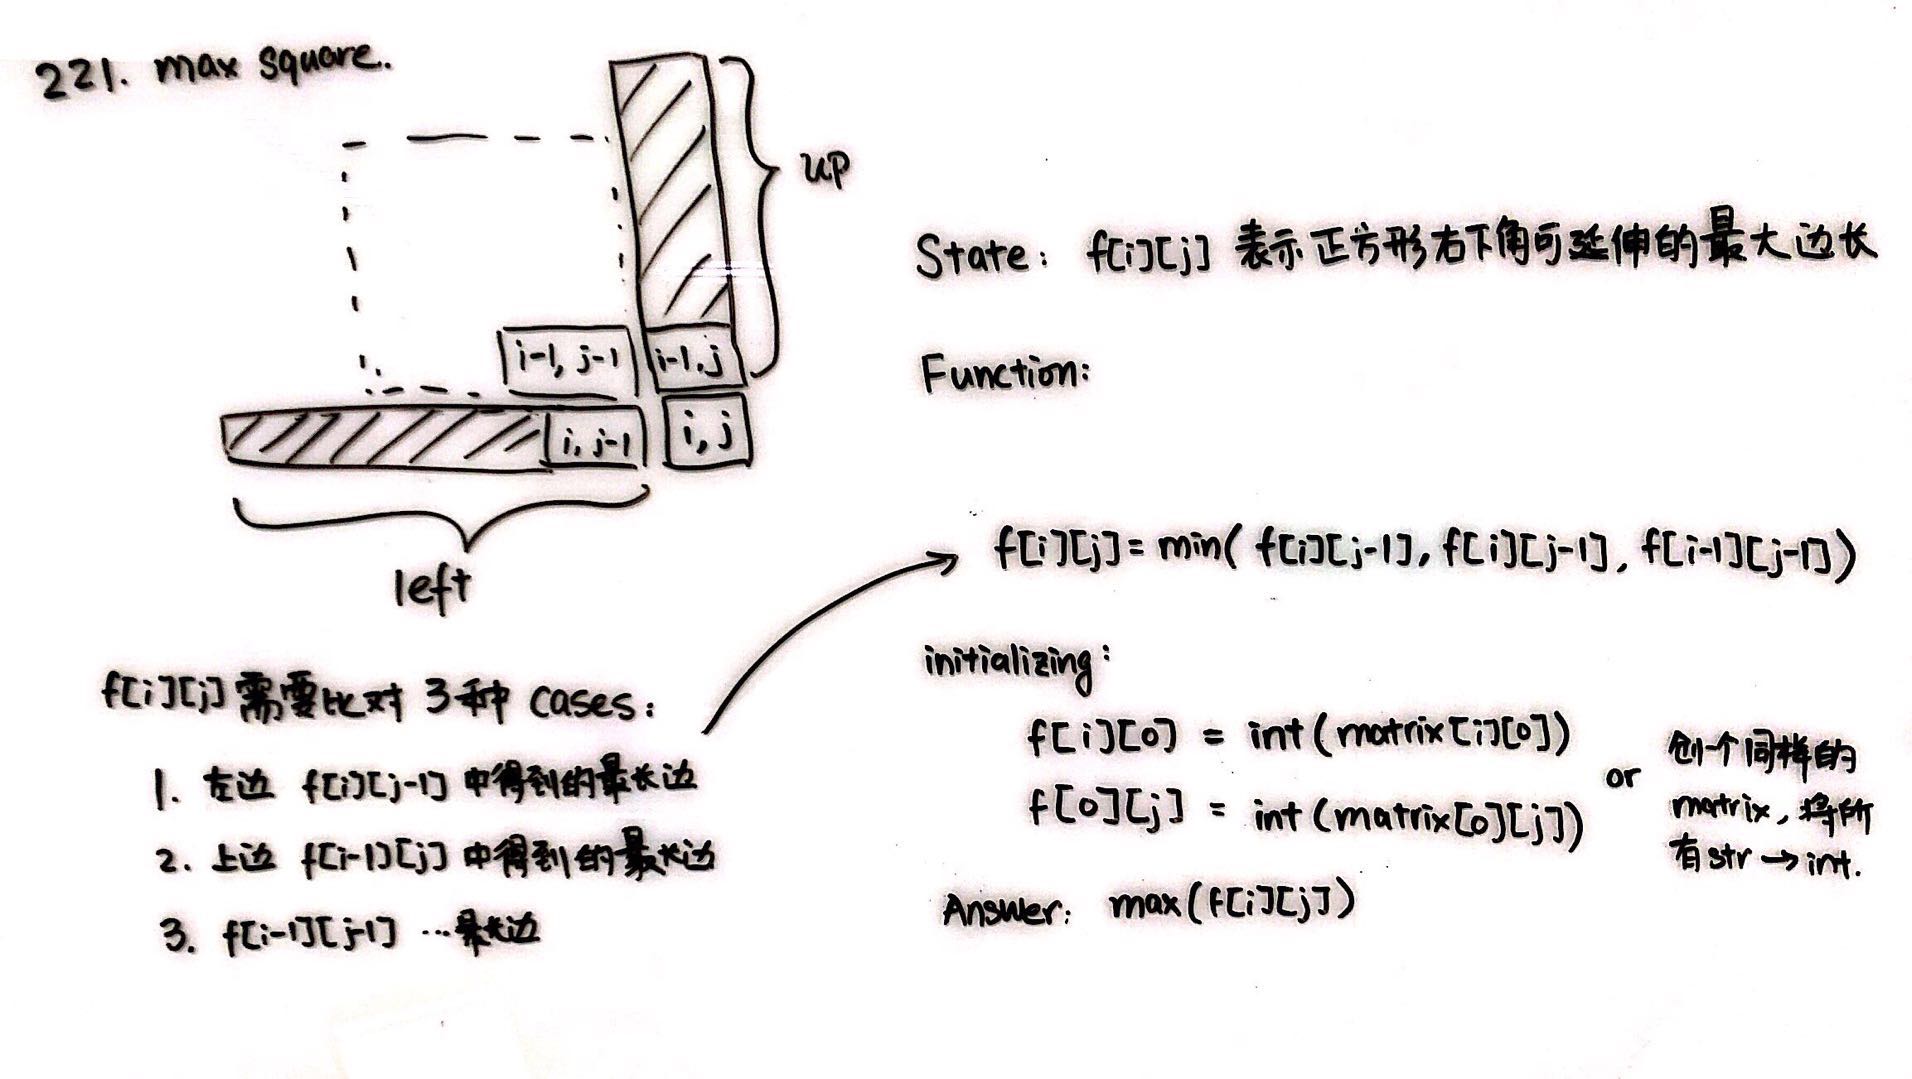 221. max square.
up
i-1, j-1
i-1, j
i, j-1
i, j
left
f[i][j] 需要比对 3种 cases:
1. 左边 f[i][j-1] 中得到的最长边
2. 上边 f[i-1][j] 中得到的最长边
3. f[i-1][j-1] ...最长边
State: f[i][j] 表示正方形右下角可延伸的最大边长
Function:
f[i][j] = min( f[i][j-1], f[i][j-1], f[i-1][j-1])
initializing:
f[i][0] = int(matrix[i][0])
f[0][j] = int(matrix[0][j])
or
创个同样的
matrix, 将所
有str → int.
Answer: max(f[i][j])